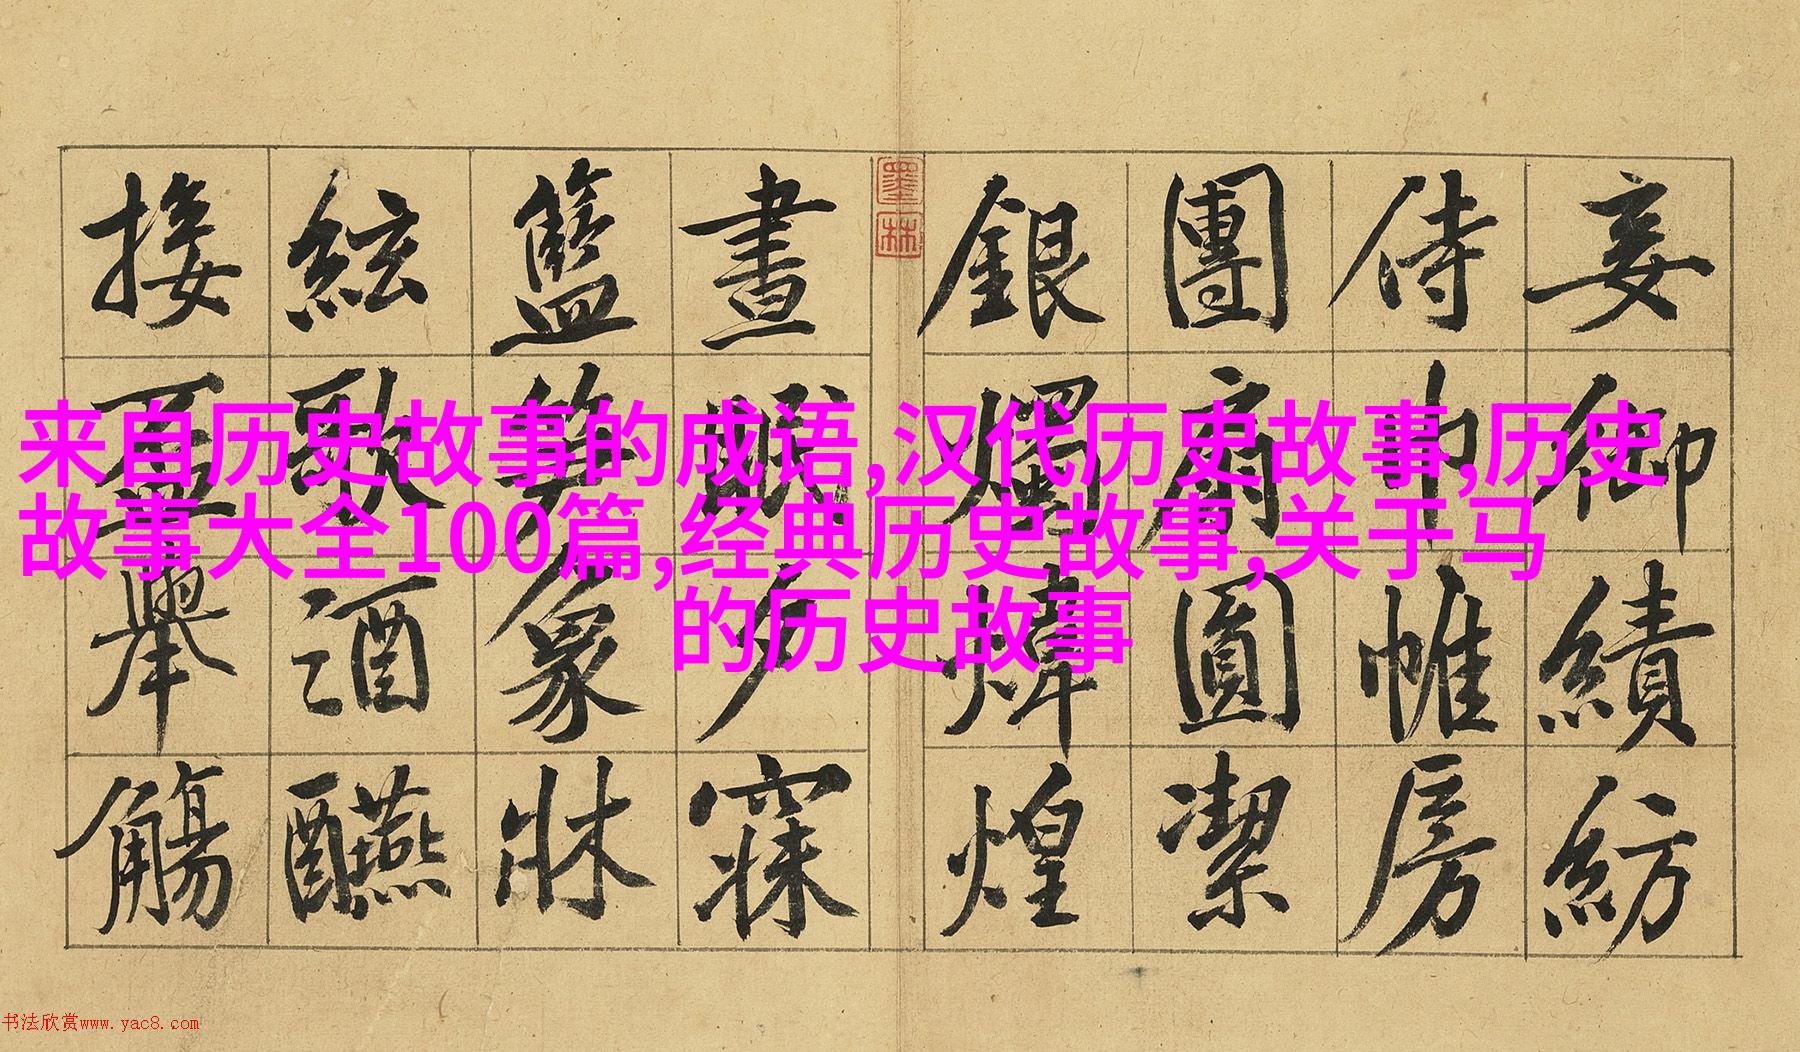 妾御績紡
侍巾帷房
團扇圓潔
銀燭煒煌
墨林
晝眠夕寐
籃笋象牀
絃歌酒醼
接盃舉觴
来自历史故事的成语,汉代历史故事,历史
故事大全100篇,经典历史故事,关于马
的历史故事
书法欣赏www.yac8.com